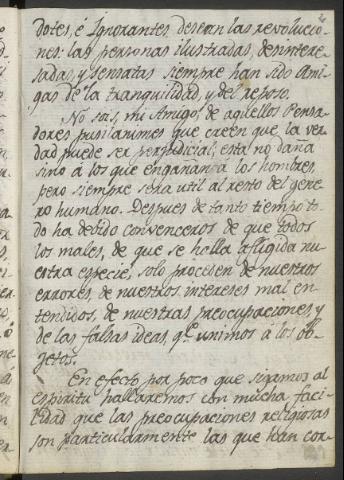 dotes, é Ignorantes desean las revolucio-
nes: las personas ilustradas, desintere-
sadas, y sensatas siempre han sido Ami-
gas de la tranquilidad, y del reposo.
No sois, mi Amigo, de aquellos Pensa-
dores pusilanimes que creen que la ver-
dad puede ser perjudicial; esta no daña
sino á los que engañan á los hombres,
pero siempre será util al resto del gene-
ro humano. Despues de tanto tiempo to-
do ha debido convenceros de que todos
los males, de que se halla afligida nu-
estra especie, solo proceden de nuestros
errores, de nuestros intereses mal en-
tendidos, de nuestras preocupaciones, y
de las falsas ideas, qe. unimos á los ob-
jetos.
En efecto por poco que sigamos al
espiritu hallaremos con mucha faci-
lidad que las preocupaciones religiosas
son particularmente las que han cor-